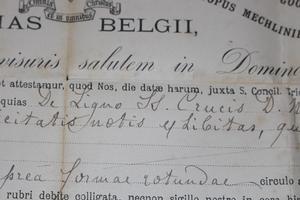 Omnia
et in omnibus
OPUS MECHLINIE
AS BELGII,
visuris salutem in Domino
et attestamur, quod Nos, die datæ harum, juxta S. Concil. Tri
quias De Ligno SS. Crucis D. N
icitatis notis exhibitas, qu
prea formae rotundae circulo a
rubri debite colligata, necnon sigillo nostro in cera